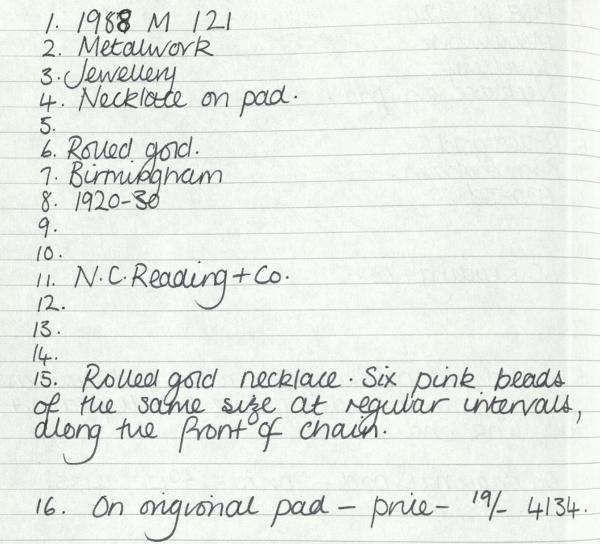 1. 1988 M 121
2. Metalwork
3. Jewellery
4. Necklace on pad.
5.
6. Rolled gold.
7. Birmingham
8. 1920-30
9.
10.
11. N.C. Reading + Co.
12.
13.
14.
15. Rolled gold necklace. Six pink beads
of the same size at regular intervals,
along the front of chain.
16. On origional pad - price - 19/- 4134.